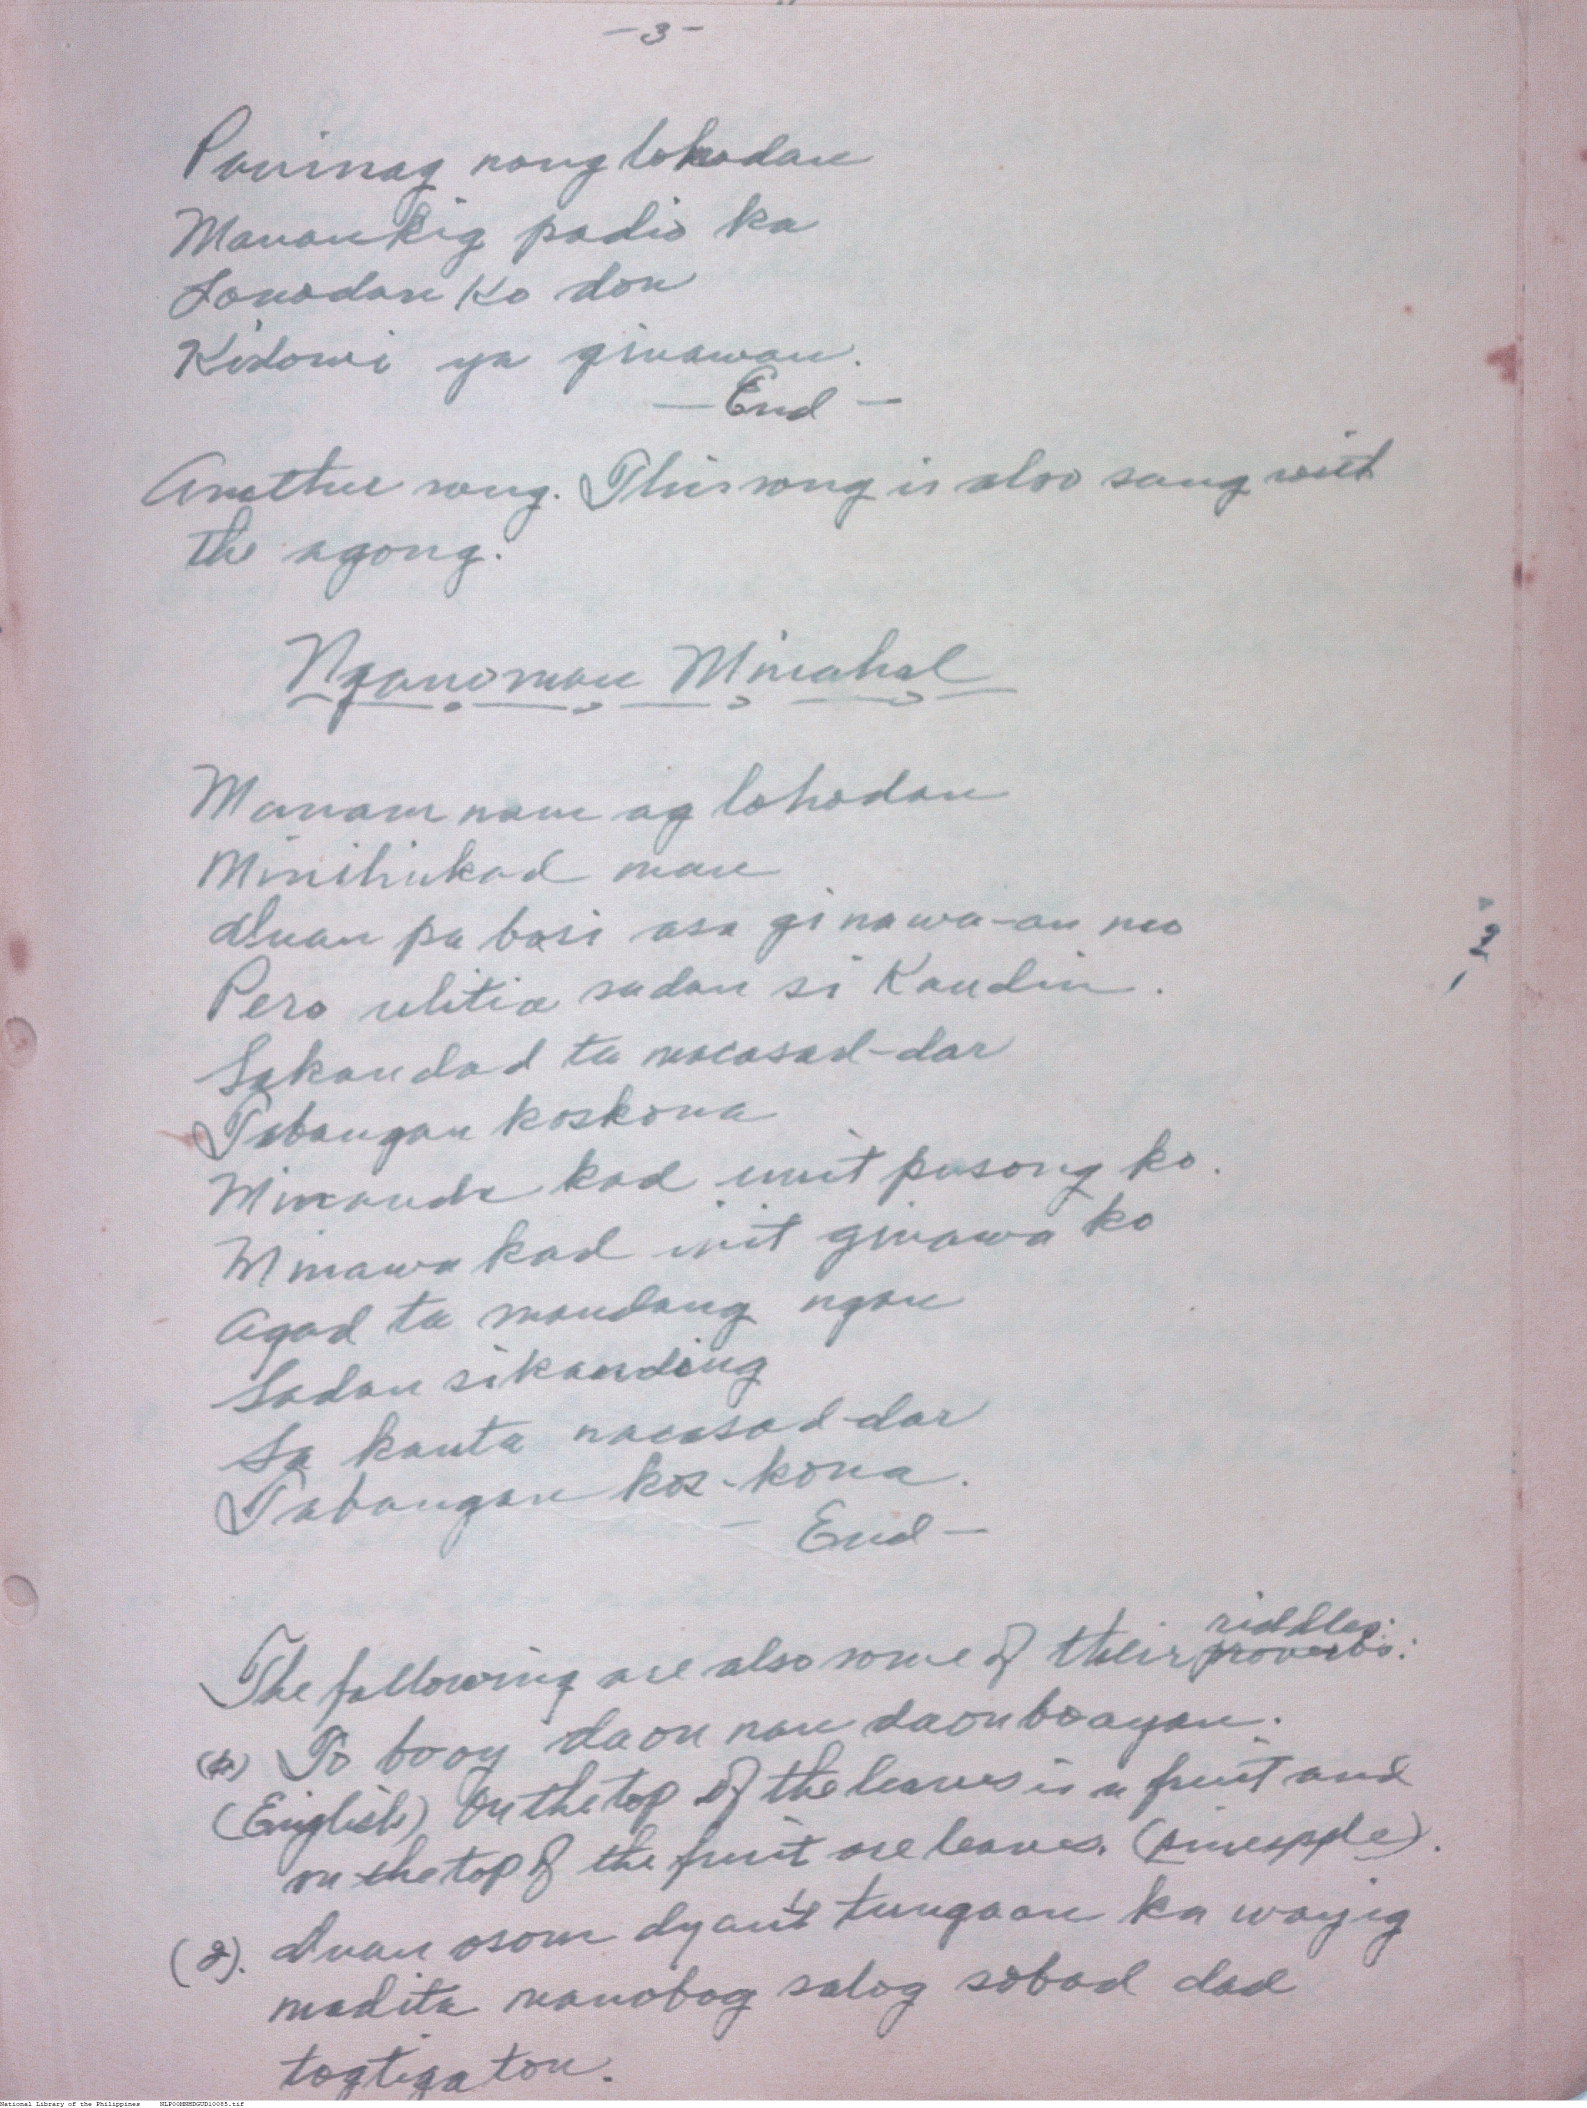 -3-
Paninag nang lohodan
Manankig padio ka
Sonodan ko don
Kidowi ya ginawan.
— End —
Another song. This song is also sung with
the agong.
Nganoman Minahal
Manam nam ag lohodan
Minihinkad man
Duan pa basi asa ginawa-an mo
Pero ulitia sadan si Kandin.
Sakandad ta nacasad-dar
Tabangan koskona
Minanda kad init pusong ko.
Minawa kad init ginawa ko
Agad ta mandang ngan
Sadan sikanding
Sa kanta nacasad-dar
Tabangan kos-kona.
— End —
The following are also some of their riddles:
To booy daon nan daon booyan.
(English) On the top of the leaves is a fruit and
on the top of the fruit are leaves. (pineapple).
(2). Duan osom dyant tungaan ka wayig
madita nanobog salog sobad dad
togtigaton.
National Library of the Philippines NLPOOMNHDGUD10085.tif